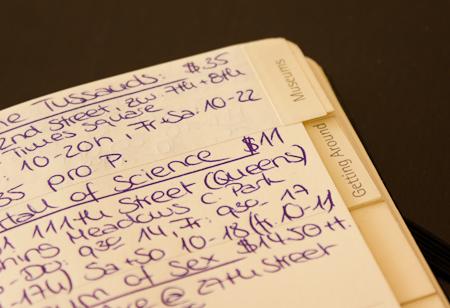 e Tussauds: $35
2nd Street, zw 7th + 8th
Times Square
: 10-20h, Fr+Sa: 10-22
35 pro P.
Hall of Science $11
111th Street (Queens)
Meadows C Park
930 14, Fr: 930 - 17
Sa+So 10-18 (fr. 10-11
um of Sex $14.50 + t.
@ 27th Street
Museums
Getting Around